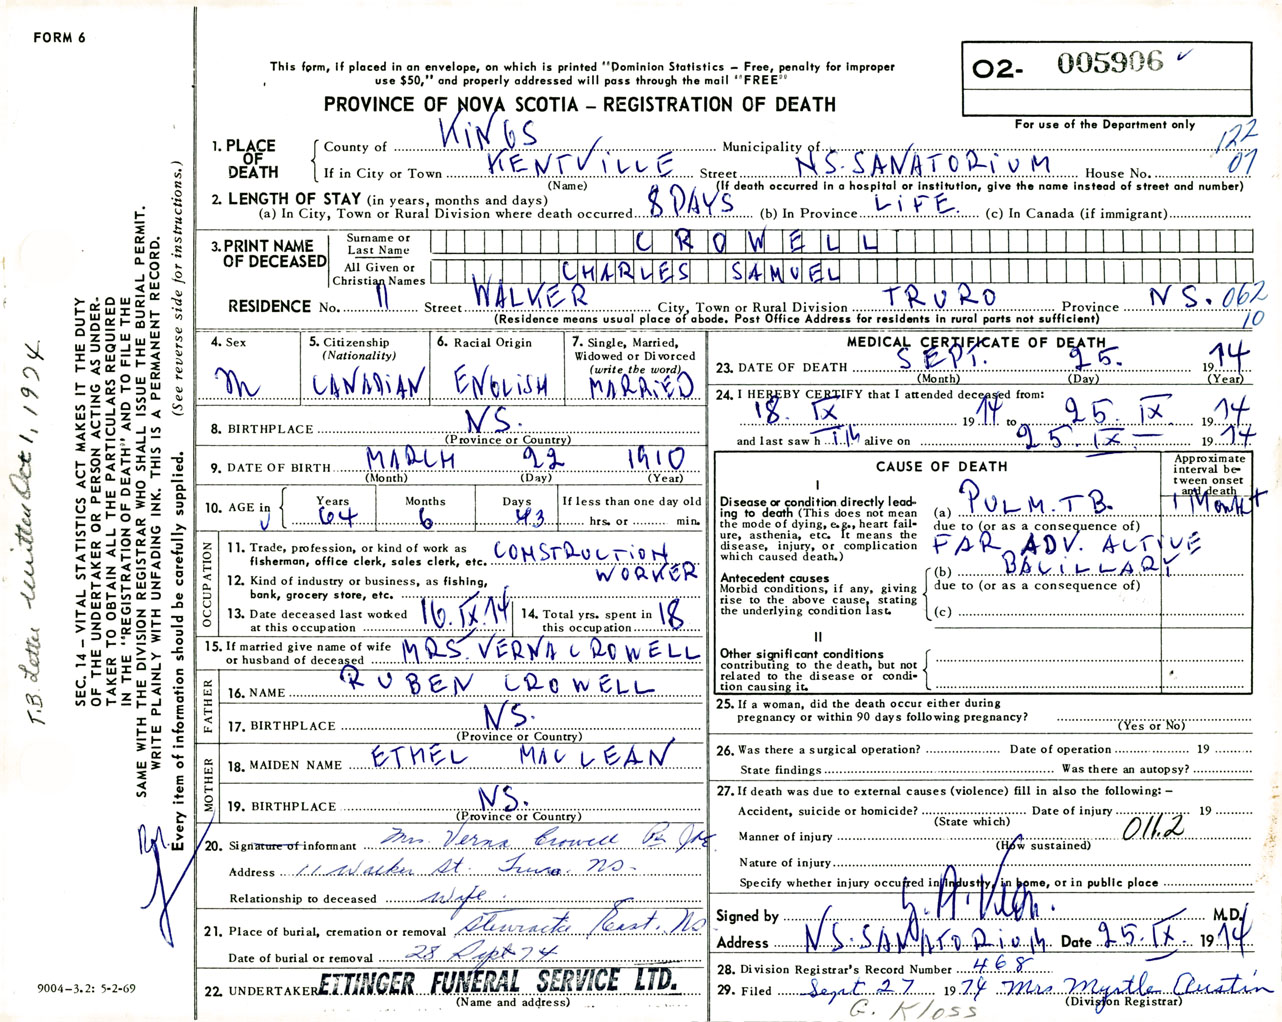 FORM 6
This form, if placed in an envelope, on which is printed "Dominion Statistics – Free, penalty for improper
use $50," and properly addressed will pass through the mail "FREE"
O2- 005906
For use of the Department only
PROVINCE OF NOVA SCOTIA – REGISTRATION OF DEATH
122
07
1. PLACE OF DEATH
County of KINGS Municipality of
If in City or Town KENTVILLE Street N.S. SANATORIUM House No.
(Name) (If death occurred in a hospital or institution, give the name instead of street and number)
2. LENGTH OF STAY (in years, months and days)
(a) In City, Town or Rural Division where death occurred 8 DAYS (b) In Province LIFE. (c) In Canada (if immigrant)
3. PRINT NAME OF DECEASED
Surname or Last Name CROWELL
All Given or Christian Names CHARLES SAMUEL
RESIDENCE No. 11 Street WALKER City, Town or Rural Division TRURO Province N.S. 062
10
(Residence means usual place of abode. Post Office Address for residents in rural parts not sufficient)
4. Sex M
5. Citizenship (Nationality) CANADIAN
6. Racial Origin ENGLISH
7. Single, Married, Widowed or Divorced (write the word) MARRIED
8. BIRTHPLACE N.S.
(Province or Country)
9. DATE OF BIRTH MARCH 22 1910
(Month) (Day) (Year)
10. AGE in Years 64 Months 6 Days 3
If less than one day old
hrs. or min.
OCCUPATION
11. Trade, profession, or kind of work as fisherman, office clerk, sales clerk, etc. CONSTRUCTION WORKER
12. Kind of industry or business, as fishing, bank, grocery store, etc.
13. Date deceased last worked at this occupation 16.IX.74
14. Total yrs. spent in this occupation 18
15. If married give name of wife or husband of deceased MRS. VERNA CROWELL
FATHER
16. NAME RUBEN CROWELL
17. BIRTHPLACE N.S.
(Province or Country)
MOTHER
18. MAIDEN NAME ETHEL MACLEAN
19. BIRTHPLACE N.S.
(Province or Country)
20. Signature of informant Mrs. Verna Crowell Per
Address 11 Walker St. Truro. NS.
Relationship to deceased Wife.
21. Place of burial, cremation or removal Stewiacke East. NS
Date of burial or removal 28 Sept 74
22. UNDERTAKER ETTINGER FUNERAL SERVICE LTD.
(Name and address)
MEDICAL CERTIFICATE OF DEATH
23. DATE OF DEATH SEPT. 25. 1974
(Month) (Day) (Year)
24. I HEREBY CERTIFY that I attended deceased from:
18. IX 1974 to 25. IX. 1974
and last saw h im alive on 25. IX 1974
CAUSE OF DEATH
Approximate interval between onset and death
I
Disease or condition directly leading to death (This does not mean the mode of dying, e.g., heart failure, asthenia, etc. It means the disease, injury, or complication which caused death.)
(a) PULM. T.B. 1 Month +
due to (or as a consequence of)
FAR ADV. ACTIVE
(b) BACILLARY
due to (or as a consequence of)
(c)
Antecedent causes
Morbid conditions, if any, giving rise to the above cause, stating the underlying condition last.
II
Other significant conditions
contributing to the death, but not related to the disease or condition causing it.
25. If a woman, did the death occur either during pregnancy or within 90 days following pregnancy?
(Yes or No)
26. Was there a surgical operation? Date of operation 19
State findings Was there an autopsy?
27. If death was due to external causes (violence) fill in also the following: –
Accident, suicide or homicide? Date of injury 19
(State which)
Manner of injury 011.2
(How sustained)
Nature of injury
Specify whether injury occurred in Industry, in home, or in public place
Signed by M.D.
Address N.S. SANATORIUM Date 25.IX. 1974
28. Division Registrar's Record Number 468
29. Filed Sept 27 1974 Mrs Myrtle Austin
(Division Registrar)
G. Kloss
SEC. 14 – VITAL STATISTICS ACT MAKES IT THE DUTY
OF THE UNDERTAKER OR PERSON ACTING AS UNDERTAKER TO OBTAIN ALL THE PARTICULARS REQUIRED
IN THE "REGISTRATION OF DEATH" AND TO FILE THE
SAME WITH THE DIVISION REGISTRAR WHO SHALL ISSUE THE BURIAL PERMIT.
WRITE PLAINLY WITH UNFADING INK. THIS IS A PERMANENT RECORD.
Every item of information should be carefully supplied. (See reverse side for instructions.)
T.B. Letter written Oct 1, 1974
9004-3.2: 5-2-69